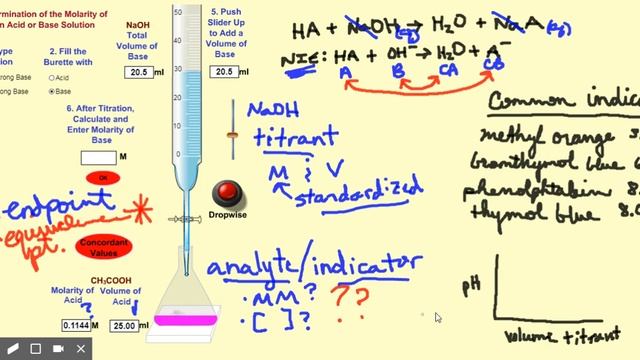 ermination of the Molarity of
n Acid or Base Solution
ype
ion
rong Base
rong Base
2. Fill the
Burette with
Acid
Base
NaOH
Total
Volume of
Base
20.5 ml
50
40
30
20
10
0
5. Push
Slider Up
to Add a
Volume of
Base
20.5 ml
6. After Titration,
Calculate and
Enter Molarity of
Base
M
OK
endpoint
pt.
Concordant
Values
CH₃COOH
Molarity of
Acid ?
Volume of
Acid
0.1144 M
25.00 ml
Dropwise
NaOH
titrant
M & V
standardized
analyte/indicator
· MM? ??
· [ ]? ??
HA + NaOH(aq) → H₂O + NaA(aq)
NIE: HA + OH⁻ → H₂O + A⁻
A B CA CB
Common indica
methyl orange 3.
bromthymol blue
phenolphthalein 8.
thymol blue 8.0
pH
volume titrant